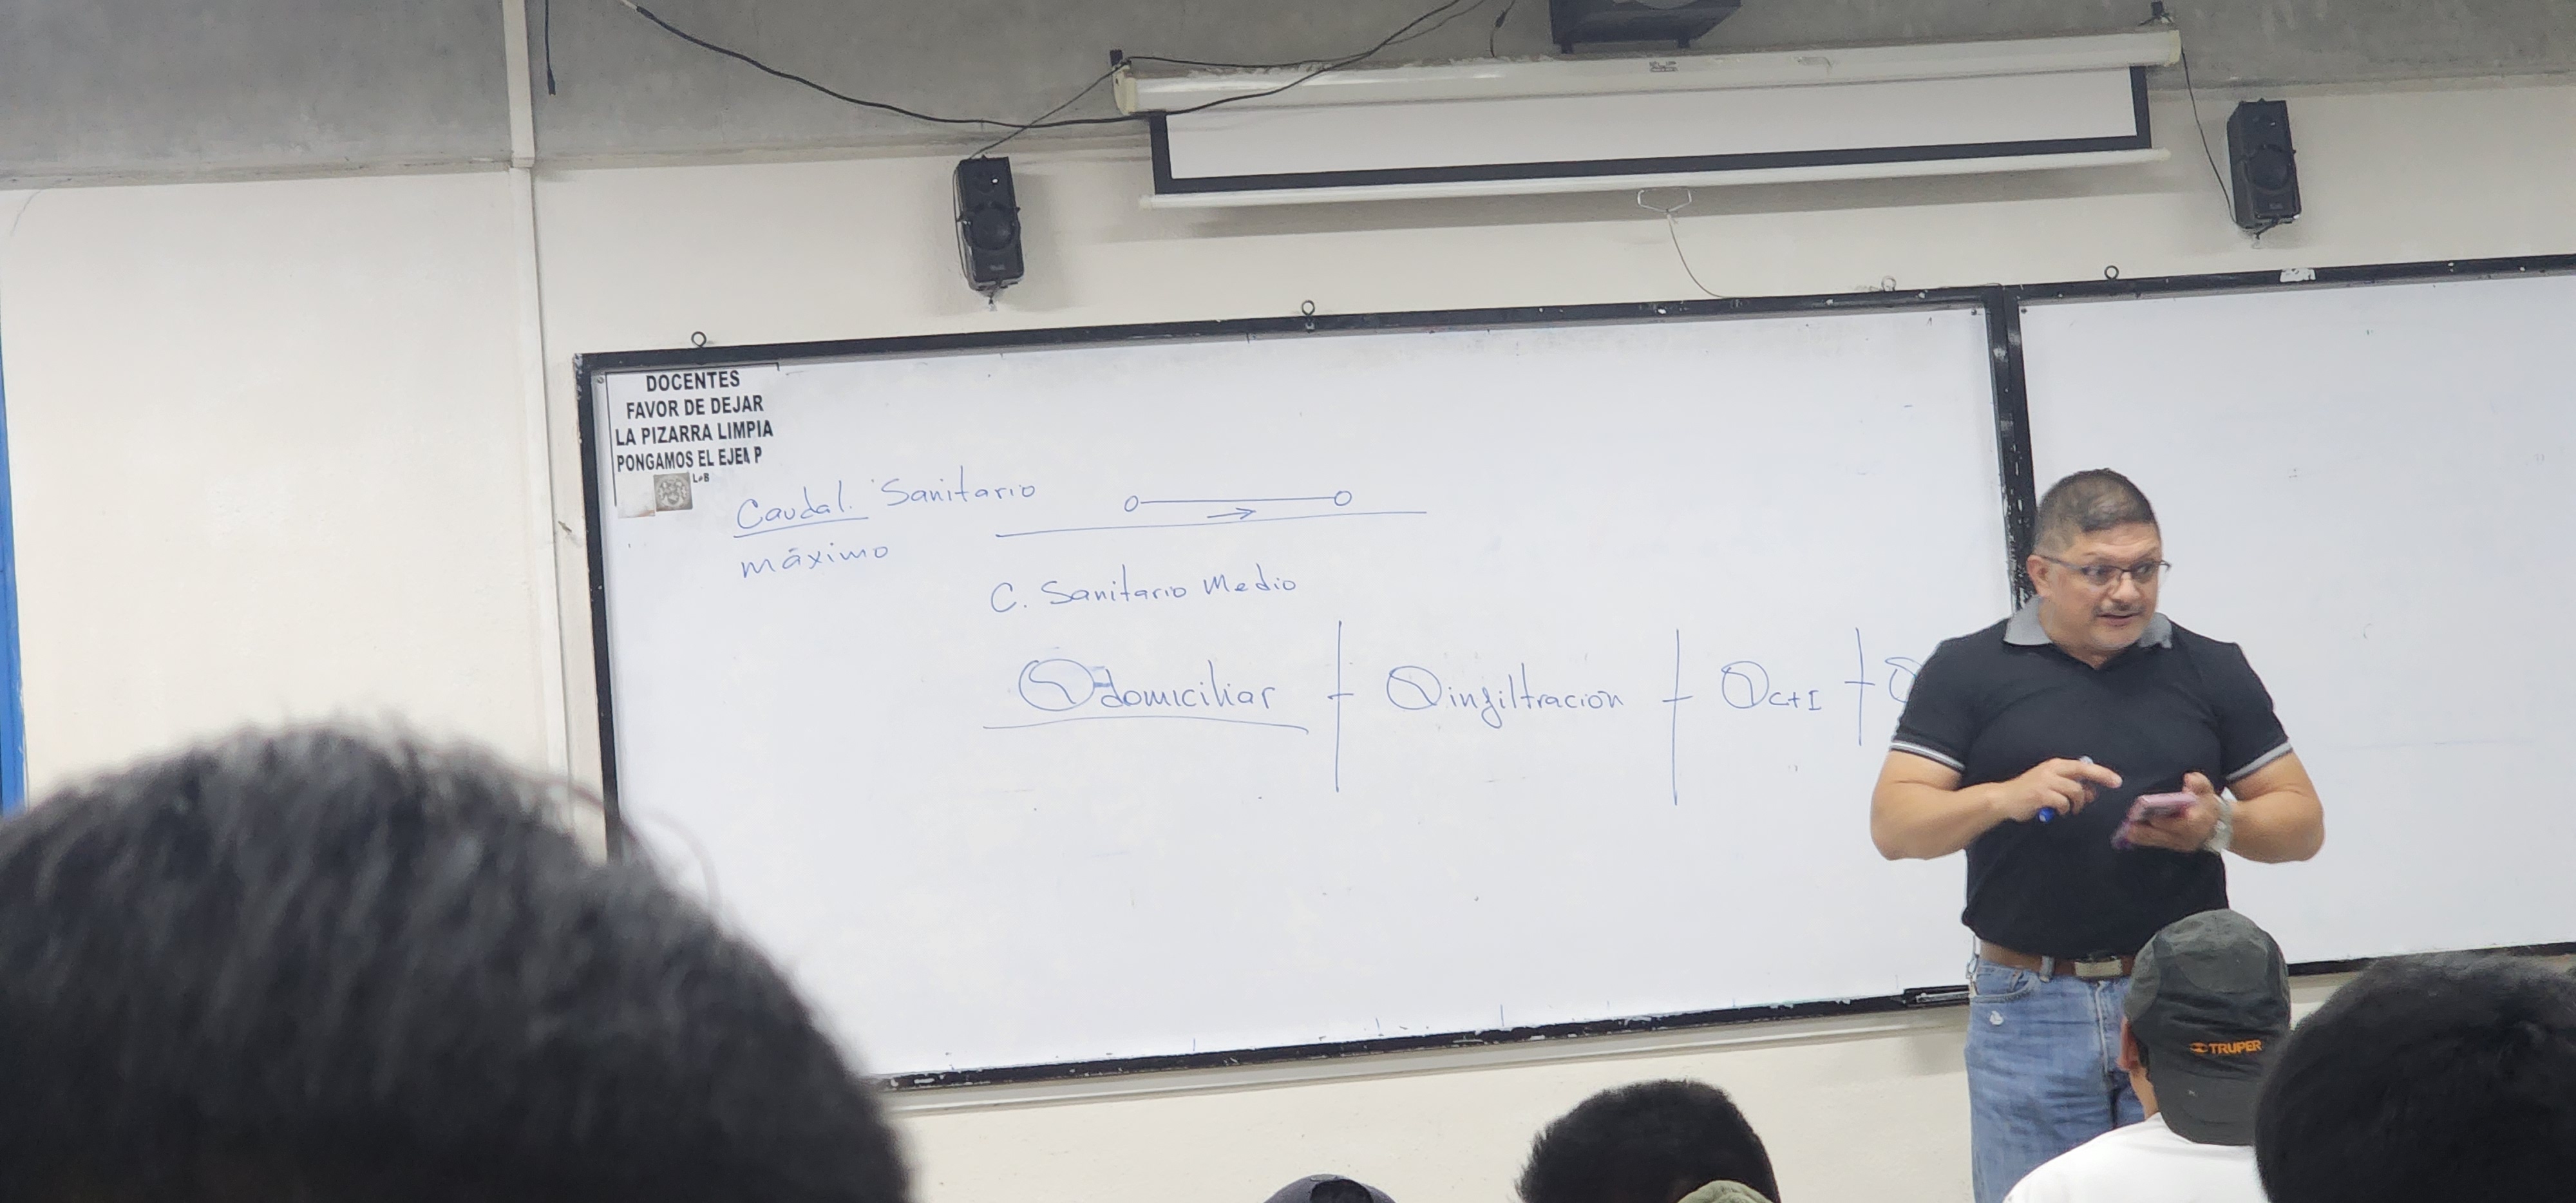 DOCENTES
FAVOR DE DEJAR
LA PIZARRA LIMPIA
PONGAMOS EL EJEM P
LAB
Caudal Sanitario
máximo
C. Sanitario Medio
Qdomiciliar + Qinfiltracion + QC+I + Q
TRUPER